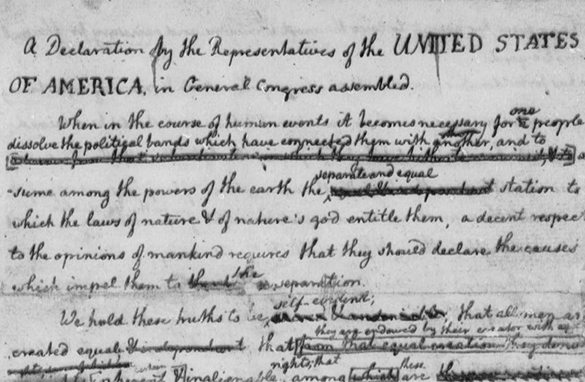 A Declaration by the Representatives of the UNITED STATES
OF AMERICA, in General Congress assembled.
When in the course of human events it becomes necessary for one people
dissolve the political bands which have connected them with another, and to
separate and equal
-sume among the powers of the earth the station to
which the laws of nature & of nature's god entitle them, a decent respec
to the opinions of mankind requires that they should declare the causes
which impel them to the separation.
self-evident;
We hold these truths to be that all men ar
they are endowed by their creator with
created equal & independent that from that equal creation they
rights; that these
inherent & inalienable, among which are